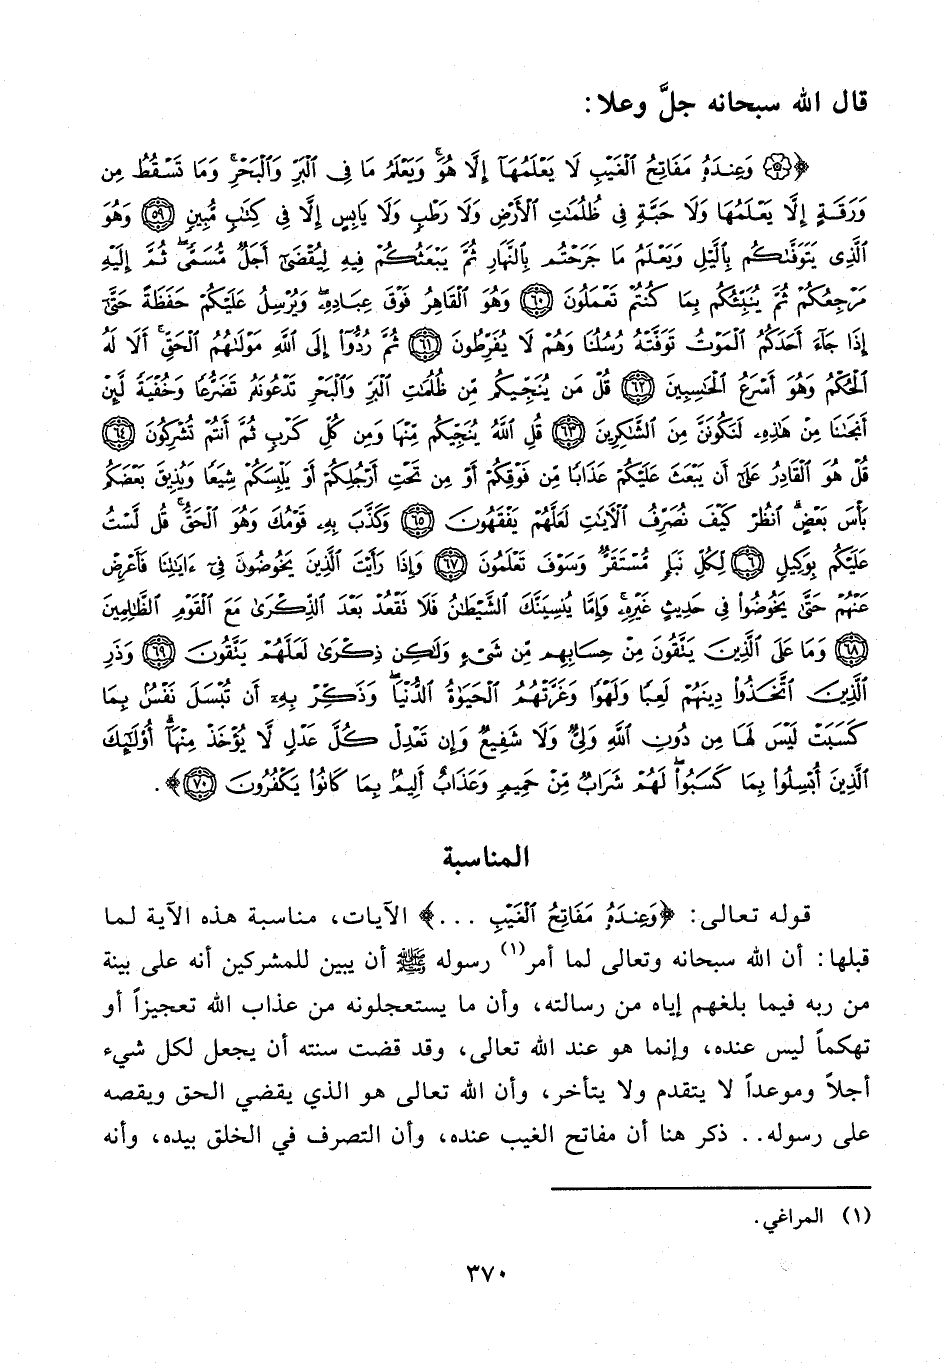 قال الله سبحانه جلَّ وعلا:
﴿۞ وَعِندَهُۥ مَفَاتِحُ الْغَيْبِ لَا يَعْلَمُهَآ إِلَّا هُوَۚ وَيَعْلَمُ مَا فِى الْبَرِّ وَالْبَحْرِۚ وَمَا تَسْقُطُ مِن
وَرَقَةٍ إِلَّا يَعْلَمُهَا وَلَا حَبَّةٍ فِى ظُلُمَٰتِ الْأَرْضِ وَلَا رَطْبٍ وَلَا يَابِسٍ إِلَّا فِى كِتَٰبٍ مُّبِينٍ ﴿٥٩﴾ وَهُوَ
الَّذِى يَتَوَفَّىٰكُم بِالَّيْلِ وَيَعْلَمُ مَا جَرَحْتُم بِالنَّهَارِ ثُمَّ يَبْعَثُكُمْ فِيهِ لِيُقْضَىٰٓ أَجَلٌ مُّسَمًّىۖ ثُمَّ إِلَيْهِ
مَرْجِعُكُمْ ثُمَّ يُنَبِّئُكُم بِمَا كُنتُمْ تَعْمَلُونَ ﴿٦٠﴾ وَهُوَ الْقَاهِرُ فَوْقَ عِبَادِهِۦۖ وَيُرْسِلُ عَلَيْكُمْ حَفَظَةً حَتَّىٰٓ
إِذَا جَآءَ أَحَدَكُمُ الْمَوْتُ تَوَفَّتْهُ رُسُلُنَا وَهُمْ لَا يُفَرِّطُونَ ﴿٦١﴾ ثُمَّ رُدُّوٓا۟ إِلَى اللَّهِ مَوْلَىٰهُمُ الْحَقِّۚ أَلَا لَهُ
الْحُكْمُ وَهُوَ أَسْرَعُ الْحَٰسِبِينَ ﴿٦٢﴾ قُلْ مَن يُنَجِّيكُم مِّن ظُلُمَٰتِ الْبَرِّ وَالْبَحْرِ تَدْعُونَهُۥ تَضَرُّعًا وَخُفْيَةً لَّئِنْ
أَنجَىٰنَا مِنْ هَٰذِهِۦ لَنَكُونَنَّ مِنَ الشَّٰكِرِينَ ﴿٦٣﴾ قُلِ اللَّهُ يُنَجِّيكُم مِّنْهَا وَمِن كُلِّ كَرْبٍ ثُمَّ أَنتُمْ تُشْرِكُونَ ﴿٦٤﴾
قُلْ هُوَ الْقَادِرُ عَلَىٰٓ أَن يَبْعَثَ عَلَيْكُمْ عَذَابًا مِّن فَوْقِكُمْ أَوْ مِن تَحْتِ أَرْجُلِكُمْ أَوْ يَلْبِسَكُمْ شِيَعًا وَيُذِيقَ بَعْضَكُم
بَأْسَ بَعْضٍۗ انظُرْ كَيْفَ نُصَرِّفُ الْآيَٰتِ لَعَلَّهُمْ يَفْقَهُونَ ﴿٦٥﴾ وَكَذَّبَ بِهِۦ قَوْمُكَ وَهُوَ الْحَقُّۚ قُل لَّسْتُ
عَلَيْكُم بِوَكِيلٍ ﴿٦٦﴾ لِّكُلِّ نَبَإٍ مُّسْتَقَرٌّۚ وَسَوْفَ تَعْلَمُونَ ﴿٦٧﴾ وَإِذَا رَأَيْتَ الَّذِينَ يَخُوضُونَ فِىٓ ءَايَٰتِنَا فَأَعْرِضْ
عَنْهُمْ حَتَّىٰ يَخُوضُوا۟ فِى حَدِيثٍ غَيْرِهِۦۚ وَإِمَّا يُنسِيَنَّكَ الشَّيْطَٰنُ فَلَا تَقْعُدْ بَعْدَ الذِّكْرَىٰ مَعَ الْقَوْمِ الظَّٰلِمِينَ
﴿٦٨﴾ وَمَا عَلَى الَّذِينَ يَتَّقُونَ مِنْ حِسَابِهِم مِّن شَىْءٍ وَلَٰكِن ذِكْرَىٰ لَعَلَّهُمْ يَتَّقُونَ ﴿٦٩﴾ وَذَرِ
الَّذِينَ اتَّخَذُوا۟ دِينَهُمْ لَعِبًا وَلَهْوًا وَغَرَّتْهُمُ الْحَيَوٰةُ الدُّنْيَاۚ وَذَكِّرْ بِهِۦٓ أَن تُبْسَلَ نَفْسٌۢ بِمَا
كَسَبَتْ لَيْسَ لَهَا مِن دُونِ اللَّهِ وَلِىٌّ وَلَا شَفِيعٌ وَإِن تَعْدِلْ كُلَّ عَدْلٍ لَّا يُؤْخَذْ مِنْهَآۗ أُو۟لَٰٓئِكَ
الَّذِينَ أُبْسِلُوا۟ بِمَا كَسَبُوا۟ۖ لَهُمْ شَرَابٌ مِّنْ حَمِيمٍ وَعَذَابٌ أَلِيمٌۢ بِمَا كَانُوا۟ يَكْفُرُونَ ﴿٧٠﴾﴾.
المناسبة
قوله تعالى: ﴿وَعِندَهُۥ مَفَاتِحُ الْغَيْبِ ...﴾ الآيات، مناسبة هذه الآية لما
قبلها: أن الله سبحانه وتعالى لما أمر(١) رسوله ﷺ أن يبين للمشركين أنه على بينة
من ربه فيما بلغهم إياه من رسالته، وأن ما يستعجلونه من عذاب الله تعجيزاً أو
تهكماً ليس عنده، وإنما هو عند الله تعالى، وقد قضت سنته أن يجعل لكل شيء
أجلاً وموعداً لا يتقدم ولا يتأخر، وأن الله تعالى هو الذي يقضي الحق ويقصه
على رسوله.. ذكر هنا أن مفاتح الغيب عنده، وأن التصرف في الخلق بيده، وأنه
(١) المراغي.
٣٧٠